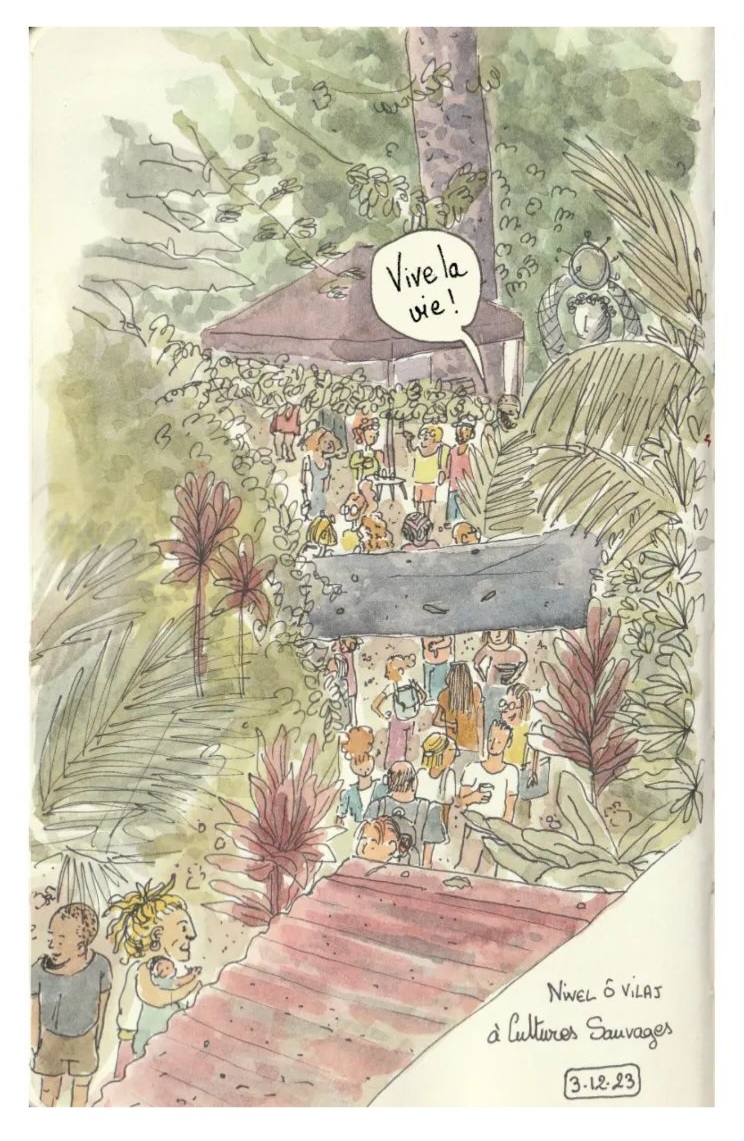 Vive la
vie !
NIVEL Ô VILAJ
à Cultures Sauvages
3.12.23